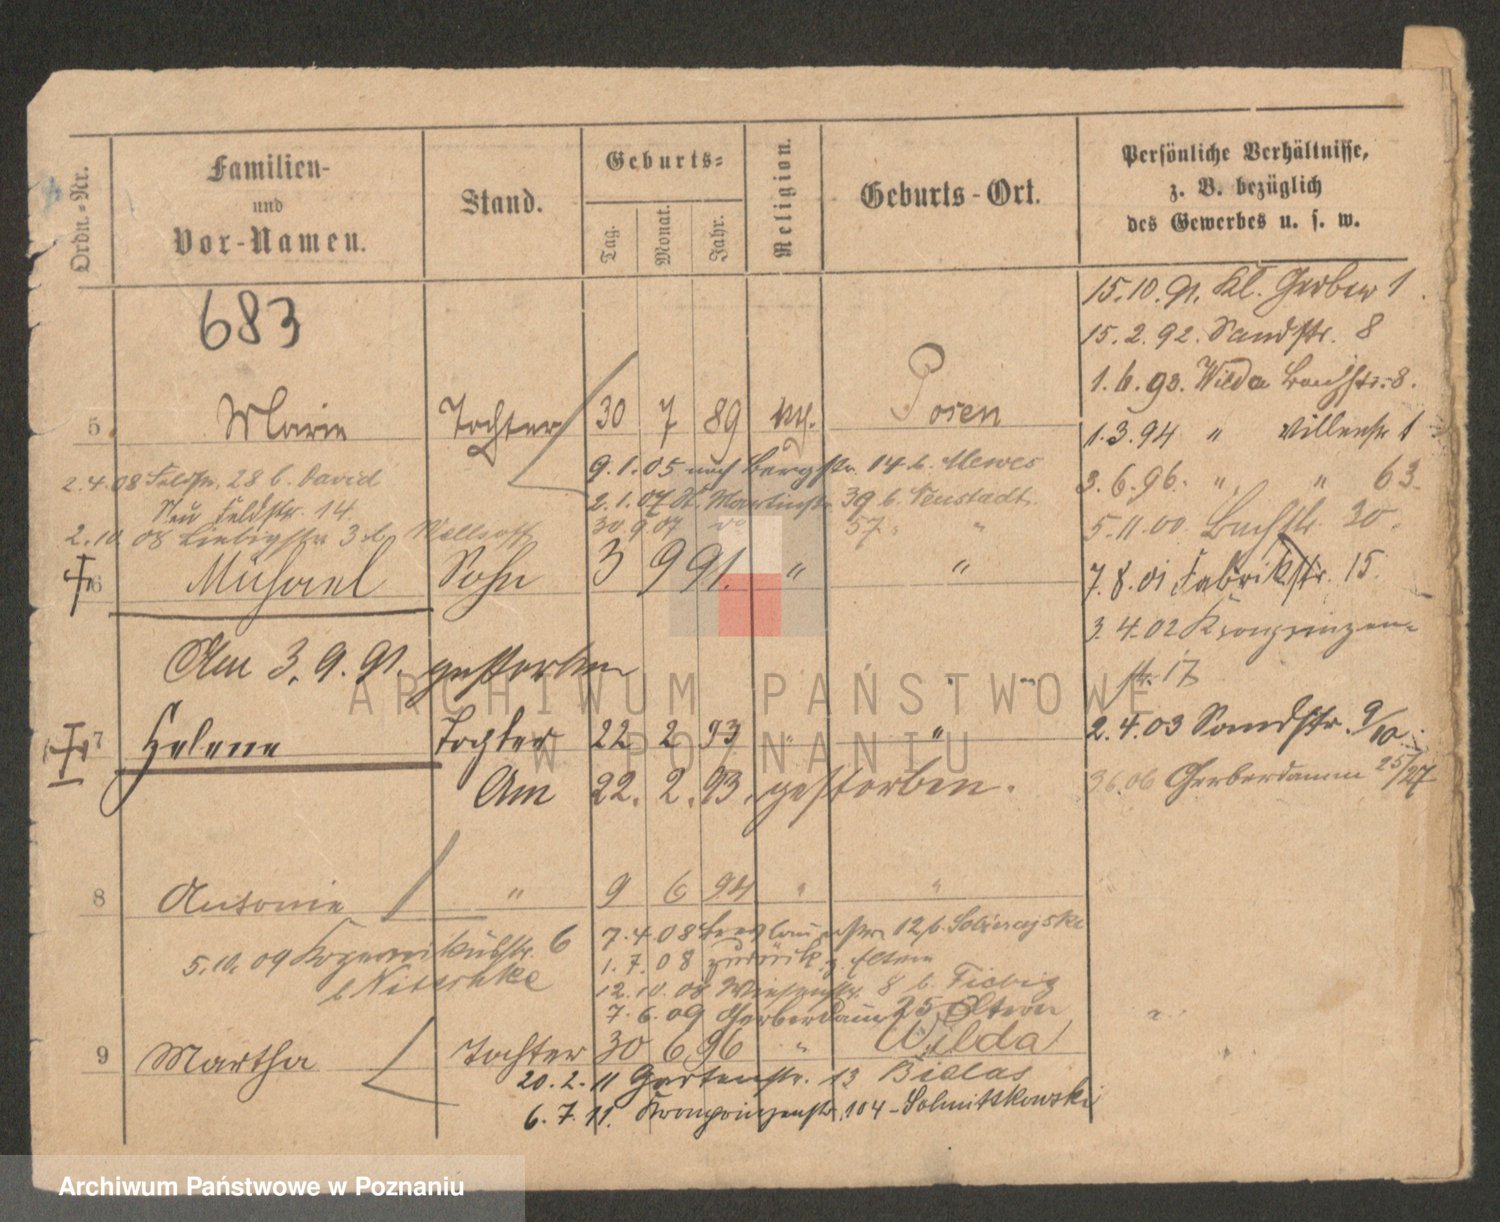 Ordn.-Nr.
Familien-
und
Vor-Namen.
Stand.
Geburts-
Tag.
Monat.
Jahr.
Religion.
Geburts-Ort.
Persönliche Verhältnisse,
z. B. bezüglich
des Gewerbes u. s. w.
683
15.10.91. Kl. Gerber 1
15.2.92. Sandstr. 8
1.6.93. Wilda Bachstr. 8.
5 Marie Tochter 30 7 89 kth. Posen
1.3.94 " Villenstr 1
9.1.05 nach Bergstr. 14 b. Mewes
3.6.96. " " 63
2.4.08 Feldstr. 28 b. David
2.1.07 St. Martinstr. 39 b. Neustadt
Neu Feldstr. 14
30.9.07 do 57 "
5.11.00. Bachstr. 30.
2.10.08 Liebigstr 3 b.
6 Michael Sohn 3 9 91. " "
7.8.01 Fabrikstr. 15.
3.4.02 Kronprinzen-
Am 3.9.91. gestorben
str. 17
7 Helene Tochter 22 2 93 " "
2.4.03 Sandstr. 9/10
Am 22.2.93. gestorben.
3.6.06 Gerberdamm 25/27
8 Antonie " 9 6 94 " "
7.4.08 12 b.
5.10.09 6
b Nitschke
1.7.08 zurück z. Eltern
12.10.08 Wiesenstr. 8 b. Fiebig
7.6.09 Gerberdamm 25 Eltern
9 Martha Tochter 30 6 96 " Wilda
20.2.11 Gartenstr. 13 Bielas
6.7.11. Kronprinzenstr. 104 -
ARCHIWUM PAŃSTWOWE
W POZNANIU
Archiwum Państwowe w Poznaniu